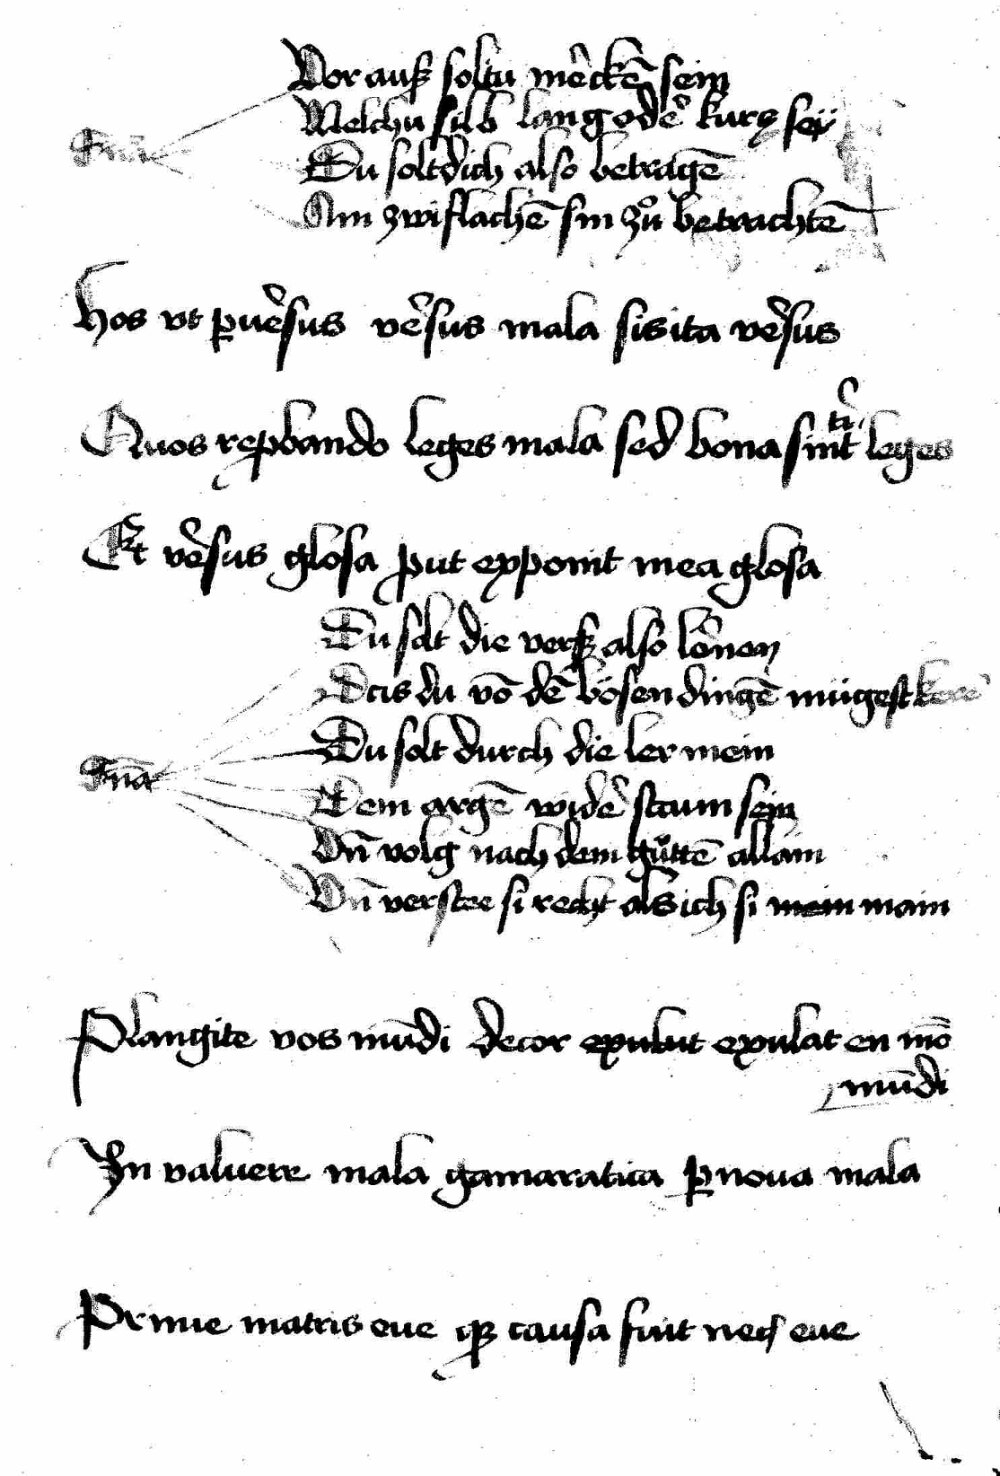 Dor auß soltu mẽckẽ sein
Welchu silb lang odẽ kurtz seÿ
Du solt dich also betragẽ
Ain zwiflachẽ sin zů betrachtẽ
Hos vt ꝑuẽsus vẽsus mala sis ita vẽsus
Quos reꝓbando leges mala sed bona sint leges
Et vẽsus glosa ꝓut exponit mea glosa
Du solt die verß also lẽnen
Das du võ dẽ bösen dingẽ mügest kerẽ
Du solt durch die ler mein
Dem argẽ widẽ staum sein
Vñ volg nach dem gůttẽ allain
Vñ verstee si recht als ich si mein main
Plangite vos mũdi decor exulut exulat en mõ
mũdi
In valuere mala gamaratica ꝑ nova mala
Prime matris eue qꝫ causa fuit necis eue